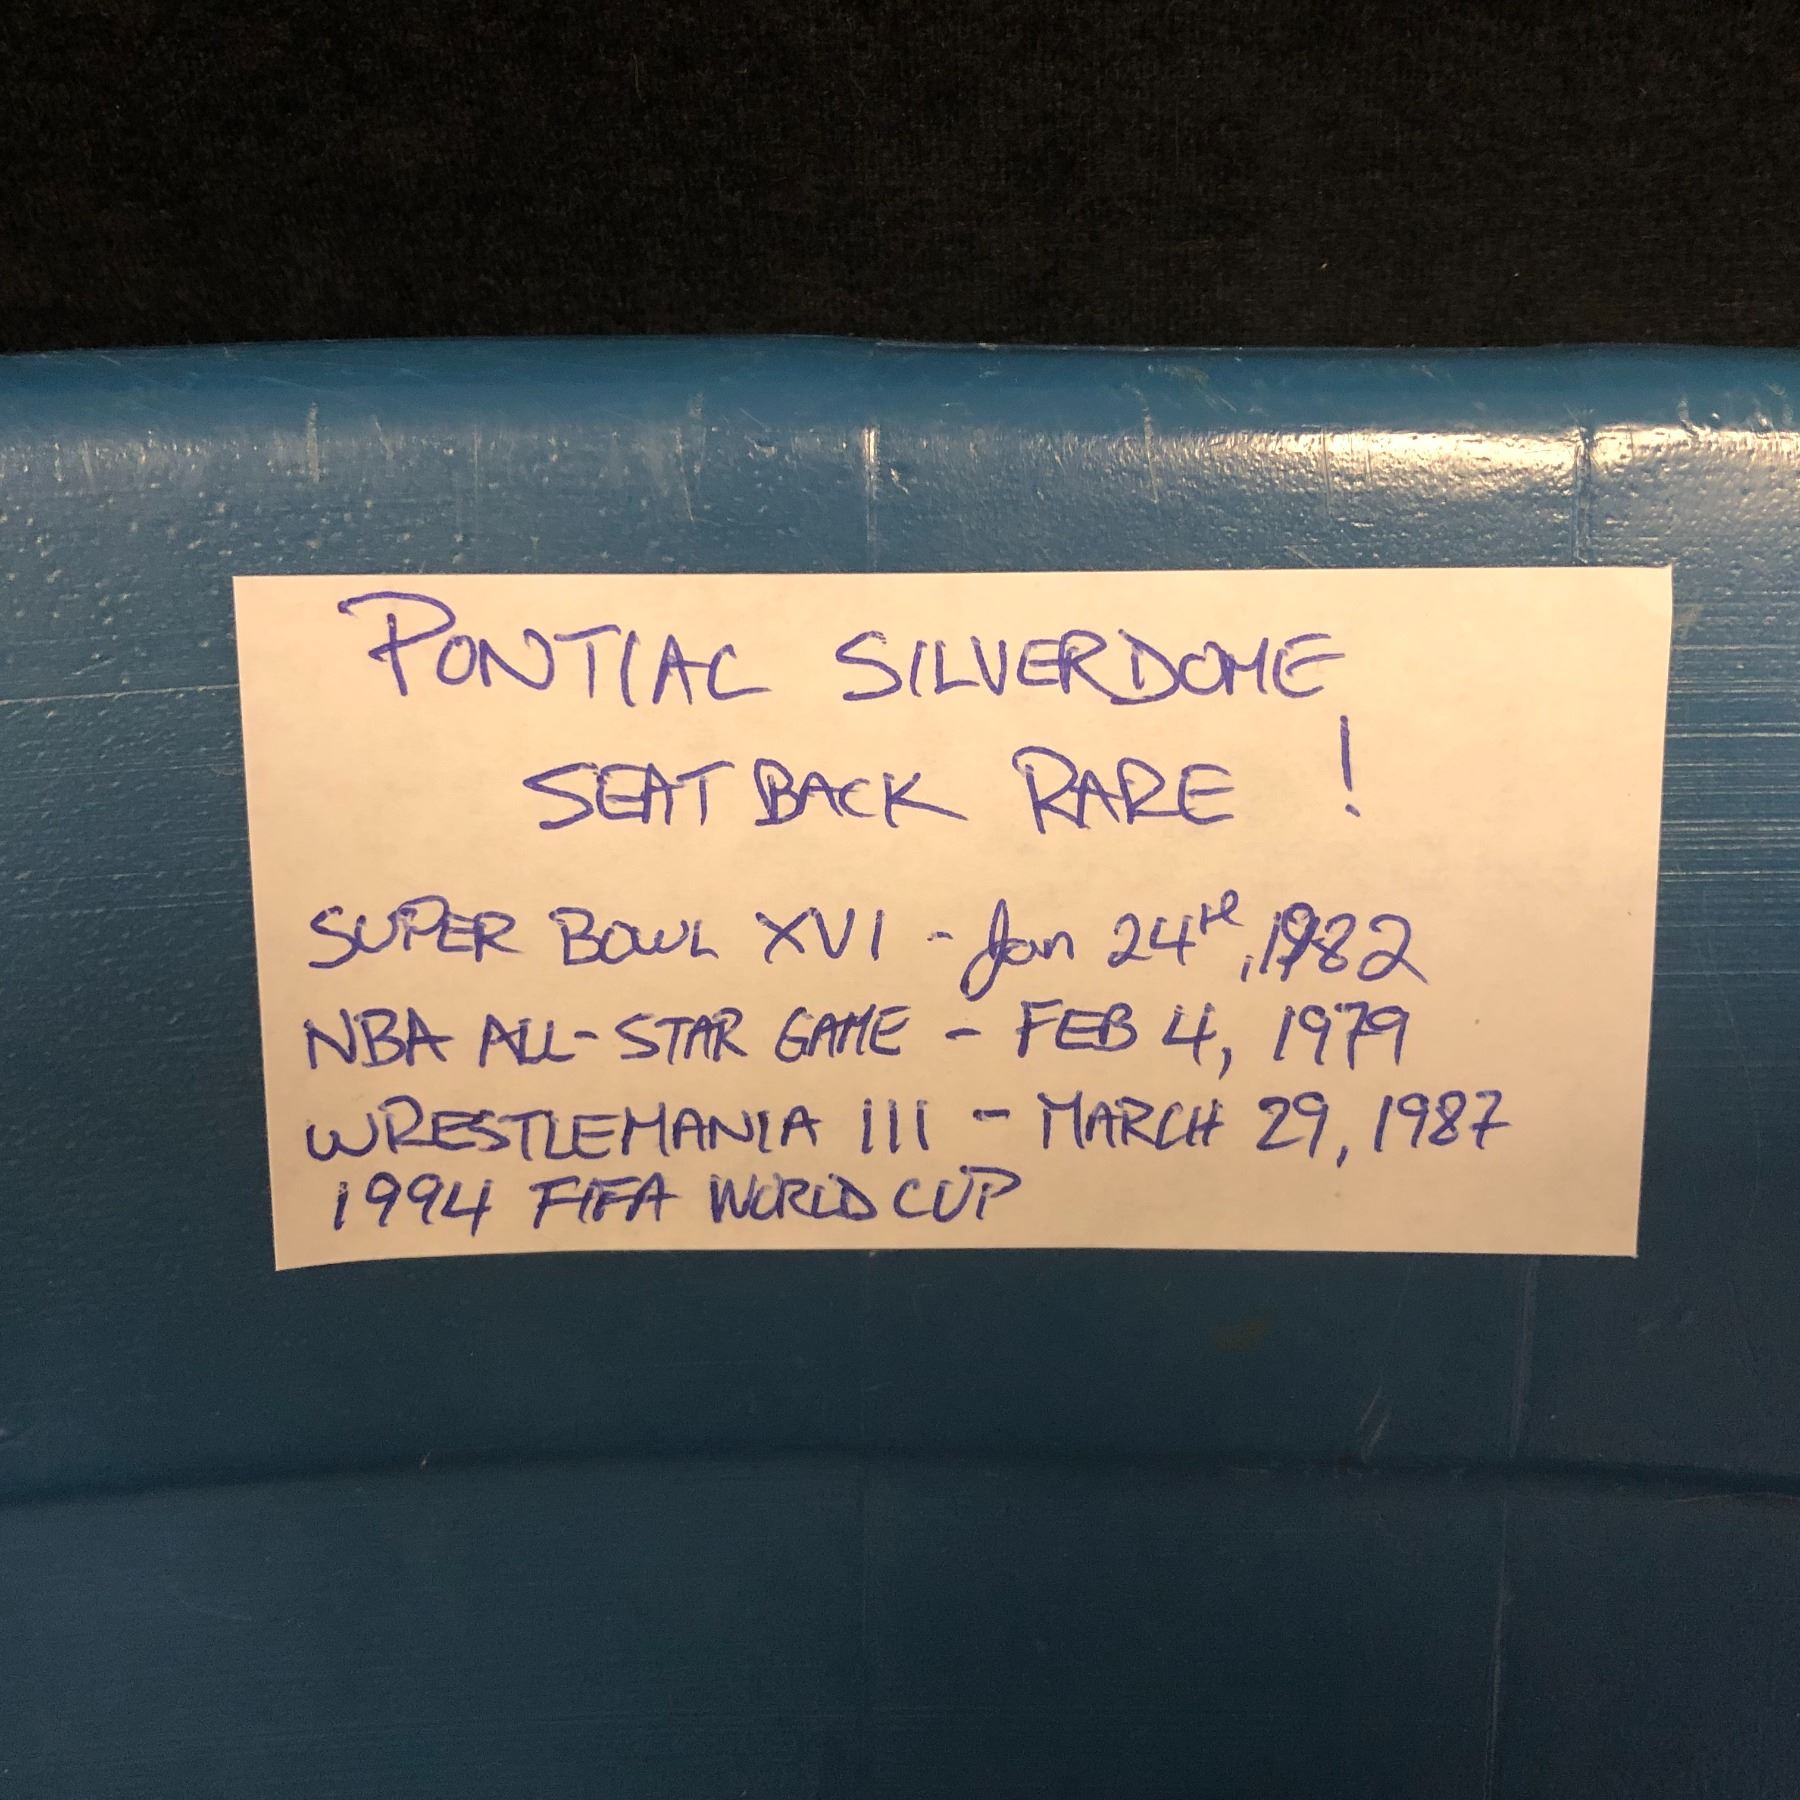 PONTIAC SILVERDOME
SEAT BACK RARE !
SUPER BOWL XVI - Jan 24TH, 1982
NBA ALL-STAR GAME - FEB 4, 1979
WRESTLEMANIA III - MARCH 29, 1987
1994 FIFA WORLD CUP